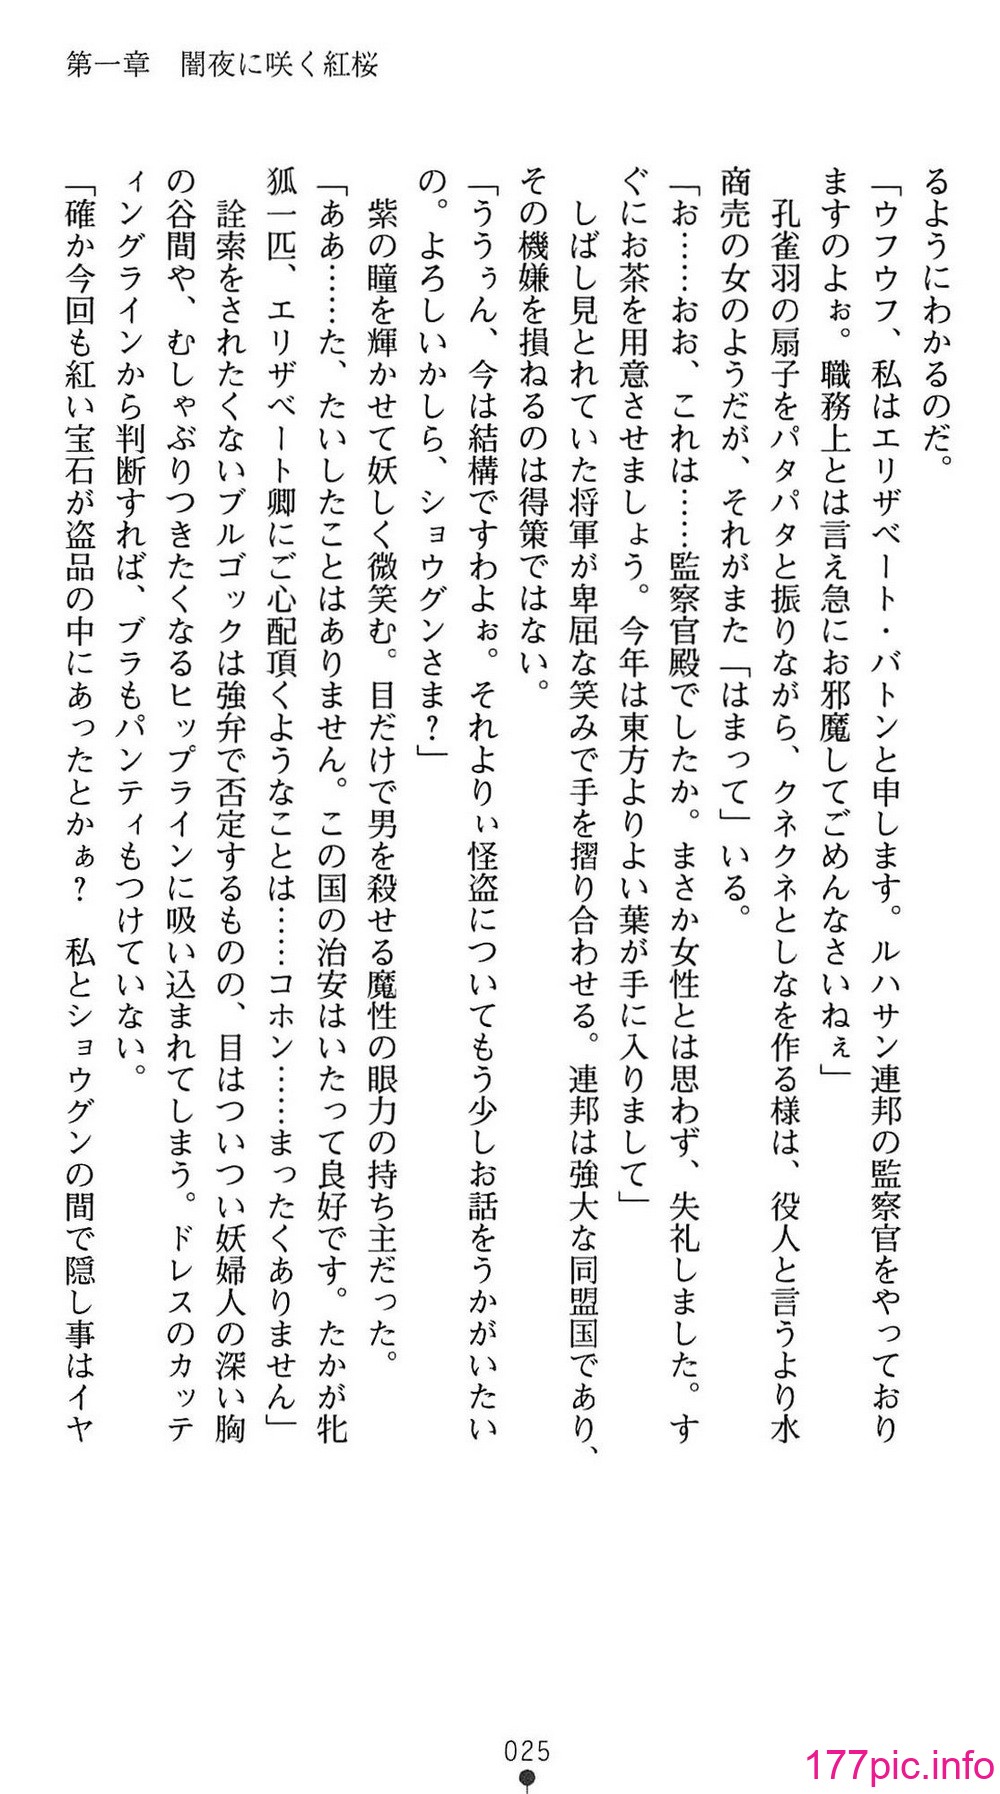 第一章　闇夜に咲く紅桜
るようにわかるのだ。
「ウフウフ、私はエリザベート・バトンと申します。ルハサン連邦の監察官をやっており
ますのよぉ。職務上とは言え急にお邪魔してごめんなさいねぇ」
　孔雀羽の扇子をパタパタと振りながら、クネクネとしなを作る様は、役人と言うより水
商売の女のようだが、それがまた「はまって」いる。
「お……おお、これは……監察官殿でしたか。まさか女性とは思わず、失礼しました。す
ぐにお茶を用意させましょう。今年は東方よりよい葉が手に入りまして」
　しばし見とれていた将軍が卑屈な笑みで手を摺り合わせる。連邦は強大な同盟国であり、
その機嫌を損ねるのは得策ではない。
「ううぅん、今は結構ですわよぉ。それよりぃ怪盗についてもう少しお話をうかがいたい
の。よろしいかしら、ショウグンさま？」
　紫の瞳を輝かせて妖しく微笑む。目だけで男を殺せる魔性の眼力の持ち主だった。
「ああ……た、たいしたことはありません。この国の治安はいたって良好です。たかが牝
狐一匹、エリザベート卿にご心配頂くようなことは……コホン……まったくありません」
　詮索をされたくないブルゴックは強弁で否定するものの、目はついつい妖婦人の深い胸
の谷間や、むしゃぶりつきたくなるヒップラインに吸い込まれてしまう。ドレスのカッテ
ィングラインから判断すれば、ブラもパンティもつけていない。
「確か今回も紅い宝石が盗品の中にあったとかぁ？　私とショウグンの間で隠し事はイヤ
025
177pic.info